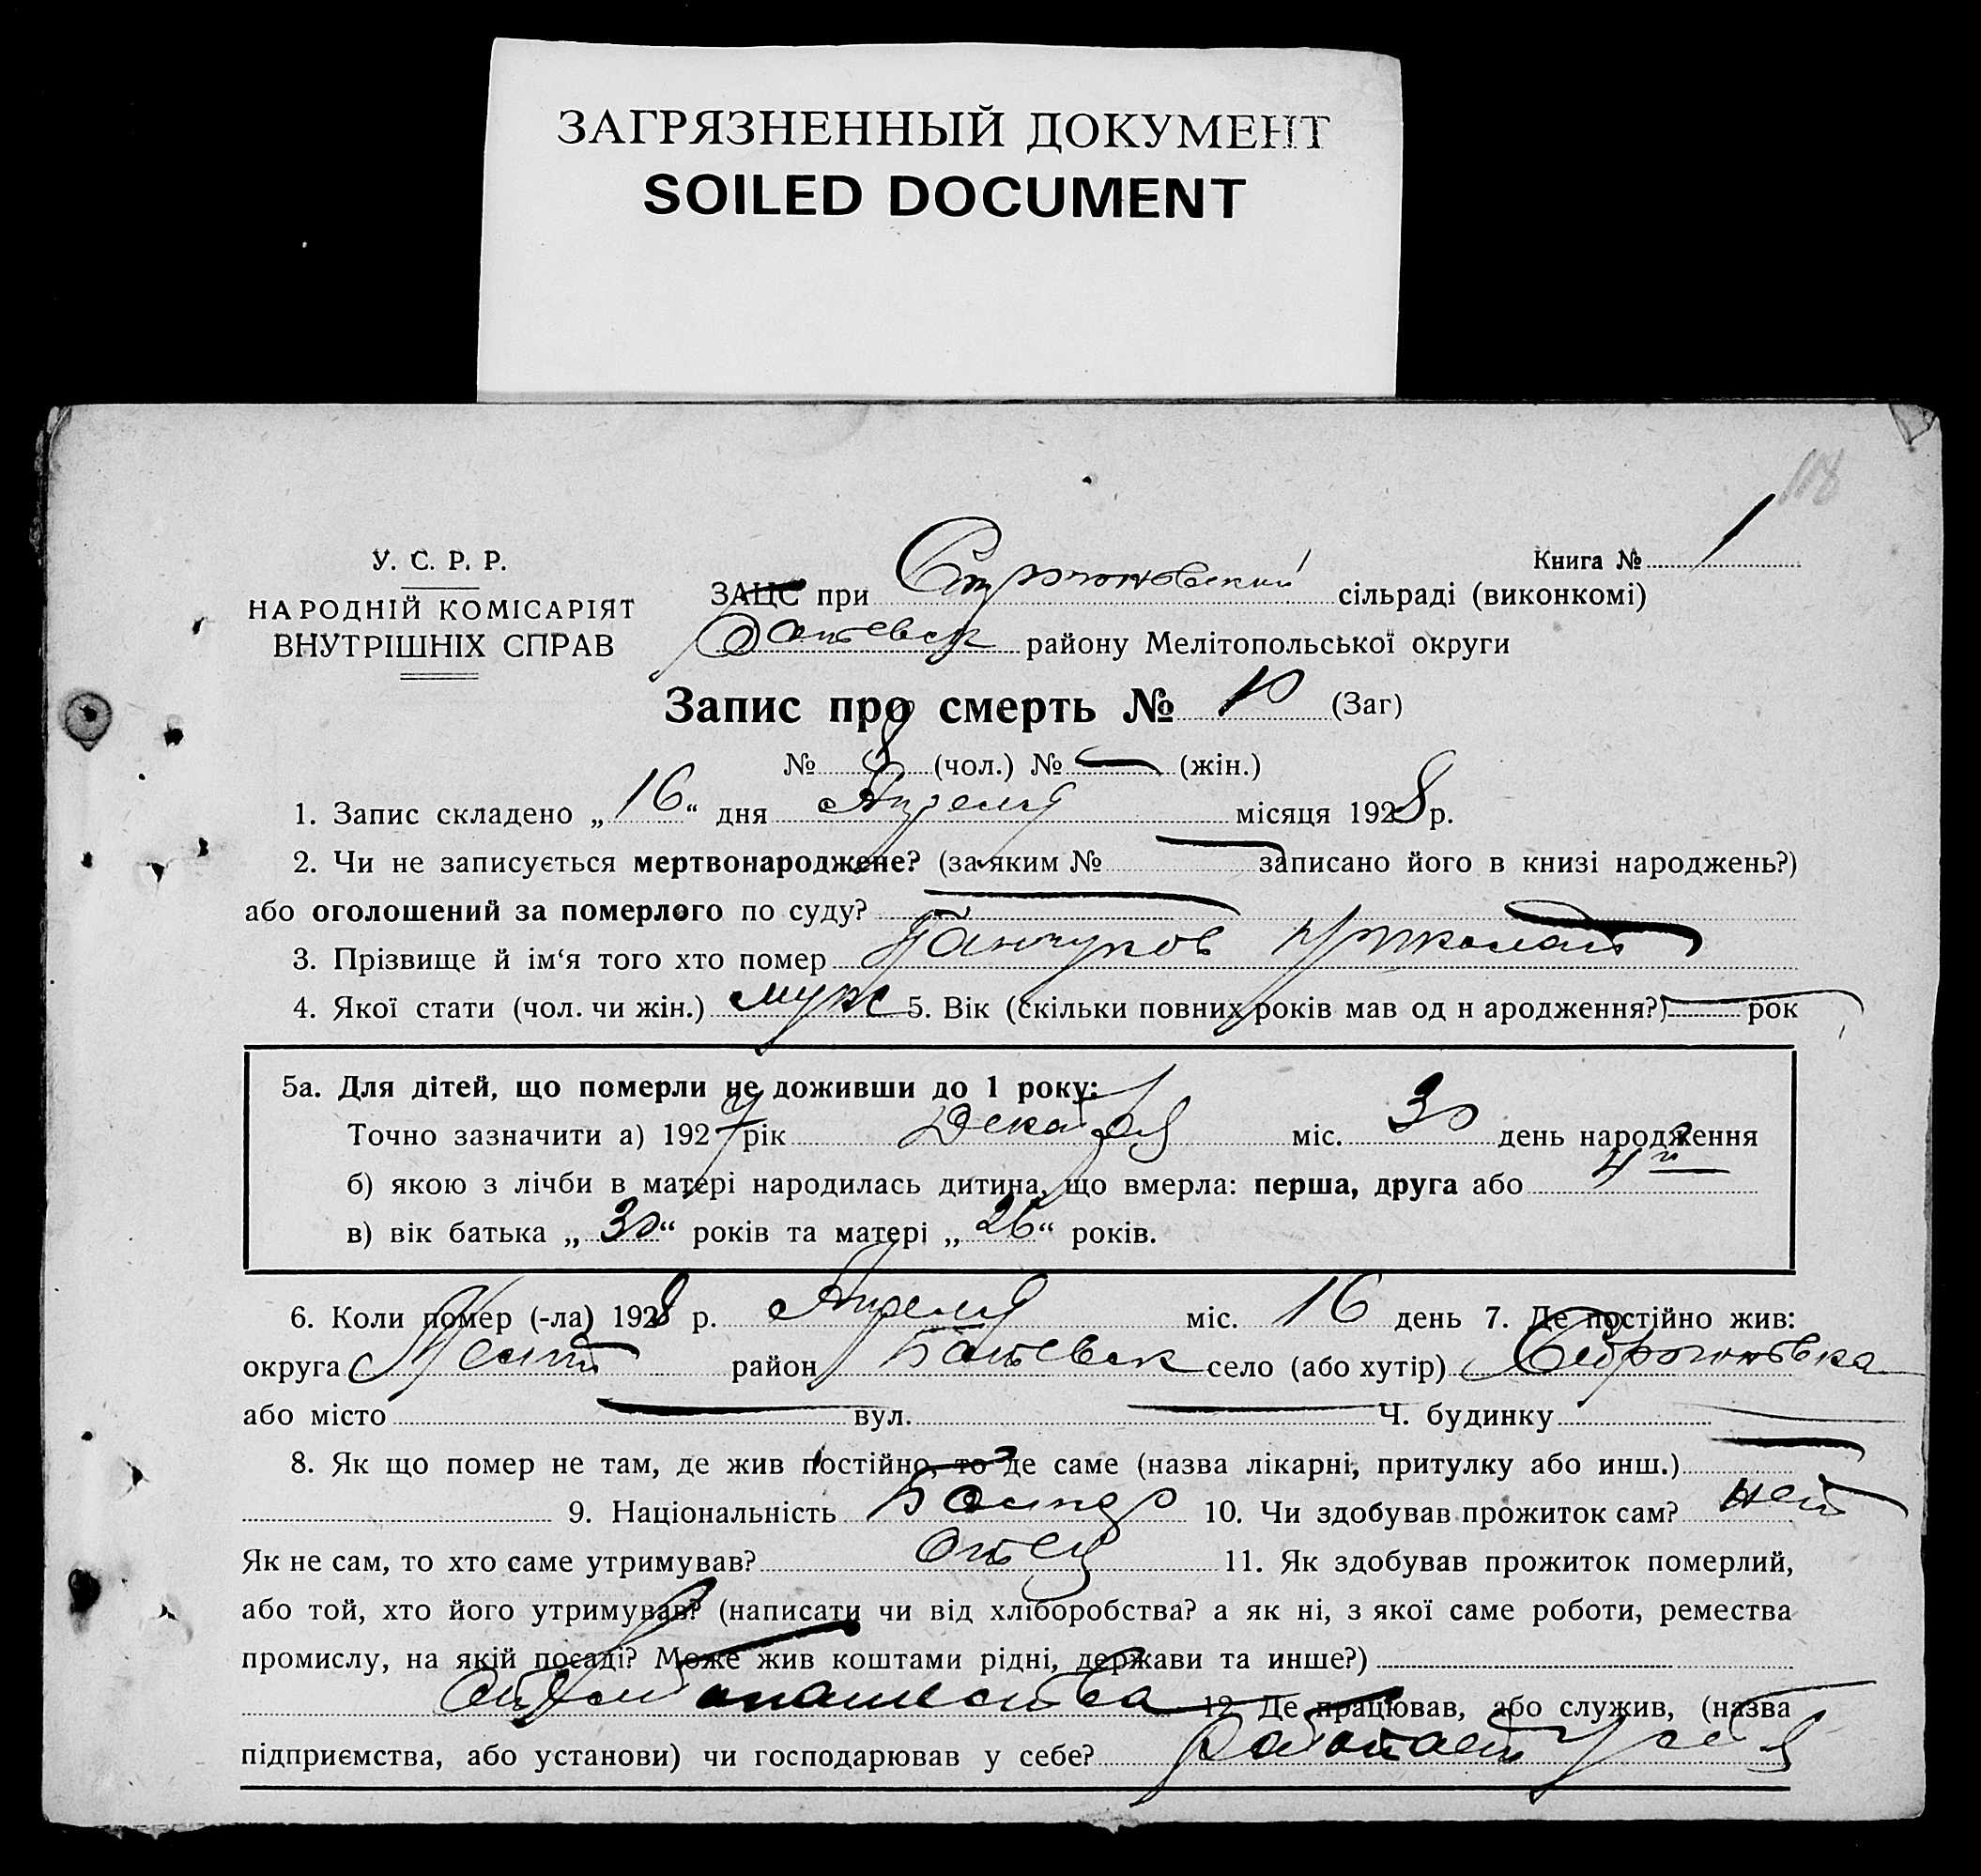 ЗАГРЯЗНЕННЫЙ ДОКУМЕНТ
SOILED DOCUMENT
118
У. С. Р. Р.
Книга № 1
НАРОДНІЙ КОМІСАРІЯТ
ВНУТРІШНІХ СПРАВ
ЗАЦС при сільраді (виконкомі)
району Мелітопольської округи
Запис про смерть № 10 (Заг)
№ 8 (чол.) № — (жін.)
1. Запис складено „16“ дня Апреля місяця 1928 р.
2. Чи не записується мертвонароджене? (за яким № — записано його в книзі народжень?)
або оголошений за померлого по суду? —
3. Прізвище й ім‘я того хто помер
4. Якої стати (чол. чи жін.) муж 5. Вік (скільки повних років мав од н ародження?) — рок
5а. Для дітей, що померли не доживши до 1 року:
Точно зазначити а) 1927 рік Декабря міс. 30 день народження
б) якою з лічби в матері народилась дитина, що вмерла: перша, друга або 4й
в) вік батька „30“ років та матері „26“ років.
6. Коли помер (-ла) 1928 р. Апреля міс. 16 день 7. Де постійно жив:
округа Мелит район Ботевск село (або хутір)
або місто — вул. — Ч. будинку —
8. Як що помер не там, де жив постійно, то де саме (назва лікарні, притулку або инш.)
9. Національність Болгар 10. Чи здобував прожиток сам? нет
Як не сам, то хто саме утримував? Отец 11. Як здобував прожиток померлий,
або той, хто його утримував? (написати чи від хліборобства? а як ні, з якої саме роботи, ремества
промислу, на якій посаді? Може жив коштами рідні, держави та инше?)
от хлебопашества 12 Де працював, або служив, (назва
підприємства, або установи) чи господарював у себе? работает у себя